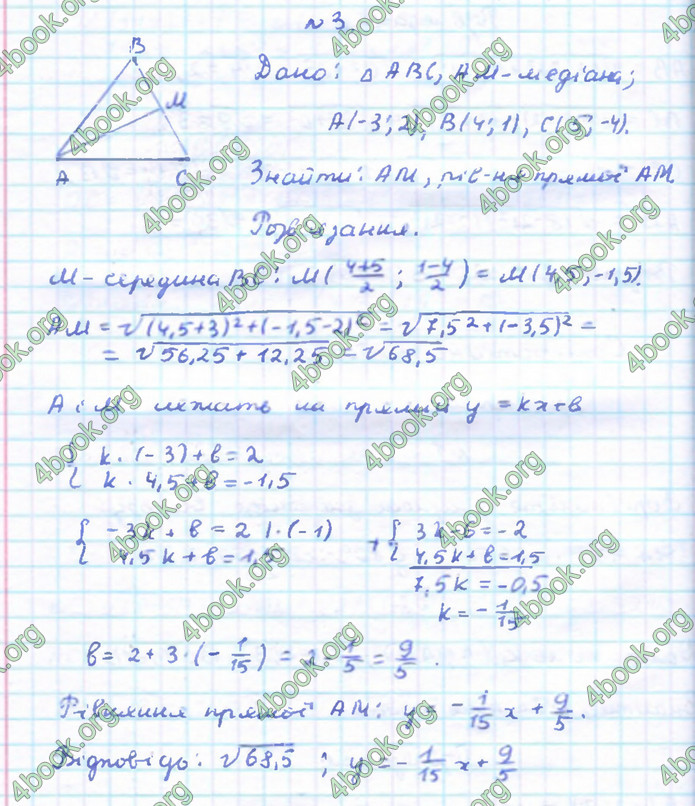 № 3
B
M
A
C
Дано: △ ABC, AM - медіана;
A(-3; 2), B(4; 1), C(5; -4).
Знайти: AM, рів-ня прямої AM
Розв'язання.
M - середина BC: M(4+5/2; 1-4/2) = M(4,5; -1,5).
AM = √(4,5+3)²+(-1,5-2)² = √7,5²+(-3,5)² =
= √56,25 + 12,25 = √68,5
A і M лежать на прямій y = kx+b
{ k · (-3) + b = 2
k · 4,5 + b = -1,5
{ -3k + b = 2 | · (-1)
4,5k + b = 1,5
+ { 3k - b = -2
4,5k + b = 1,5
7,5k = -0,5
k = - 1/15
b = 2 + 3 · (- 1/15) = 2 - 1/5 = 9/5.
Рівняння прямої AM: y = - 1/15 x + 9/5.
Відповідь: √68,5 ; y = - 1/15 x + 9/5
4book.org